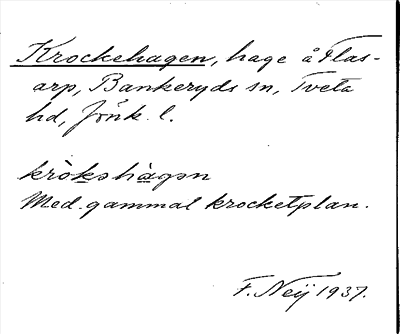 Krockehagen, hage å Flas-
arp, Bankeryds sn, Tveta
hd, Jönk. l.
kròkshàgən
Med gammal krocketplan.
F. Neij 1937.